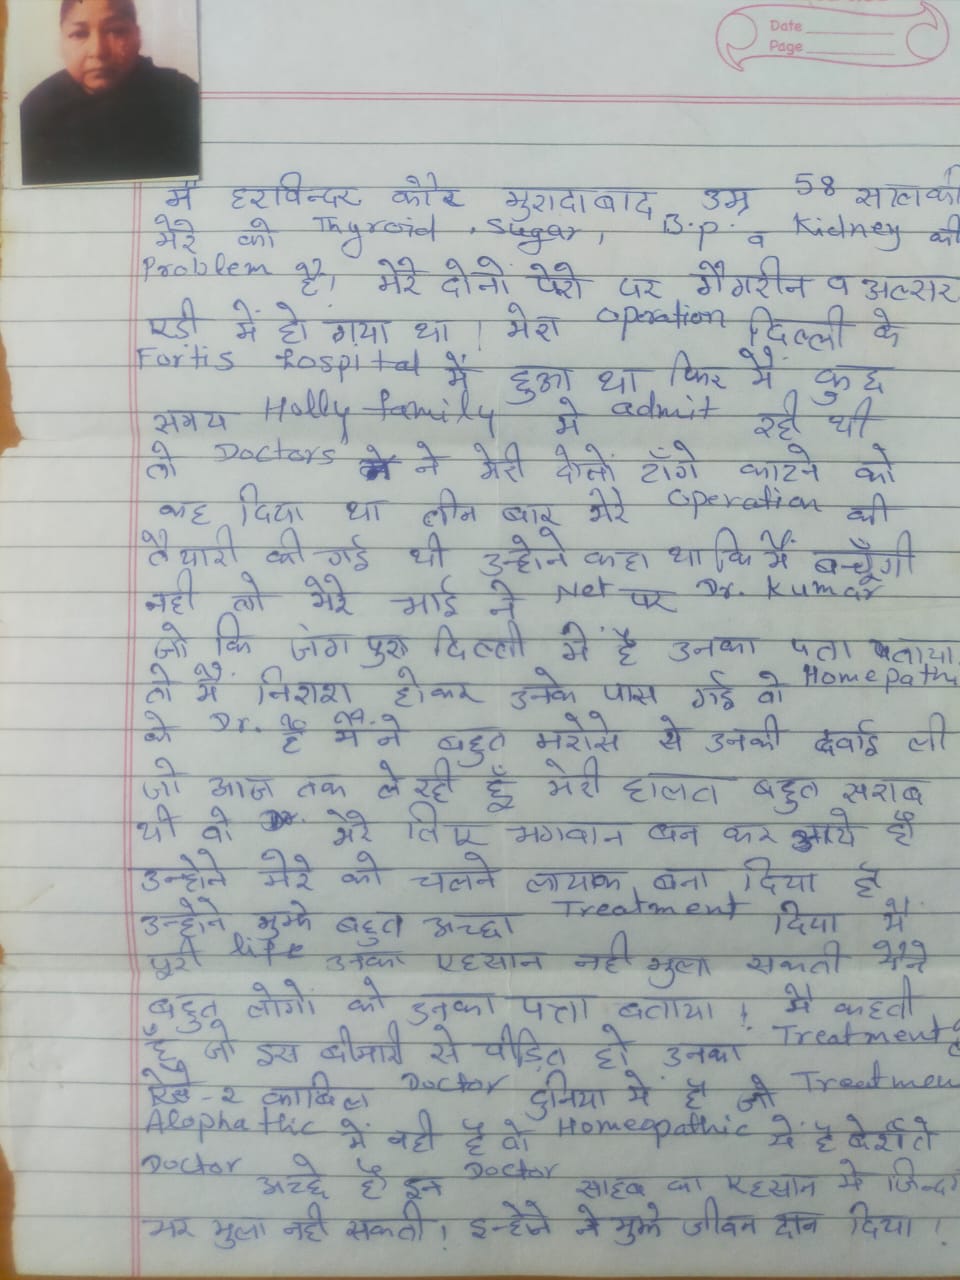 Date
Page
मैं हरविन्दर कौर मुरादाबाद उम्र 58 साल की
मेरे को Thyroid, Sugar, B.P. व Kidney की
Problem है। मेरे दोनो पैरो पर गैंगरीन व अल्सर
एडी में हो गया था। मेरा Operation दिल्ली के
Fortis Hospital में हुआ था फिर मैं कुछ
समय Holly family में admit रही थी
तो Doctors ने मेरी दोनों टाँगे काटने को
कह दिया था तीन बार मेरे Operation की
तैयारी की गई थी उन्होने कहा था कि मैं बचूँगी
नही तो मेरे भाई ने Net पर Dr. Kumar
जो कि जंगपुरा दिल्ली में है उनका पता बताया
तो मैं निराश होकर उनके पास गई वो Homepathi
के Dr. है मैंने बहुत भरोसे से उनकी दवाई ली
जो आज तक ले रही हूँ मेरी हालत बहुत खराब
थी वो Dr. मेरे लिए भगवान बन कर आये है
उन्होने मेरे को चलने लायक बना दिया है
उन्होने मुझे बहुत अच्छा Treatment दिया मैं
पूरी life उनका एहसान नही भुला सकती मैंने
बहुत लोगों को उनका पता बताया। मैं कहती
हूँ जो इस बीमारी से पीड़ित हो उनका Treatment
ऐसे-२ काबिल Doctor दुनिया में है जो Treatmen
Alophathic में नही है वो Homeopathic में है बेशर्ते
Doctor अच्छे हो इन Doctor साहब का एहसान मैं जिन्दगी
भर भुला नही सकती। इन्होने ने मुझे जीवन दान दिया।